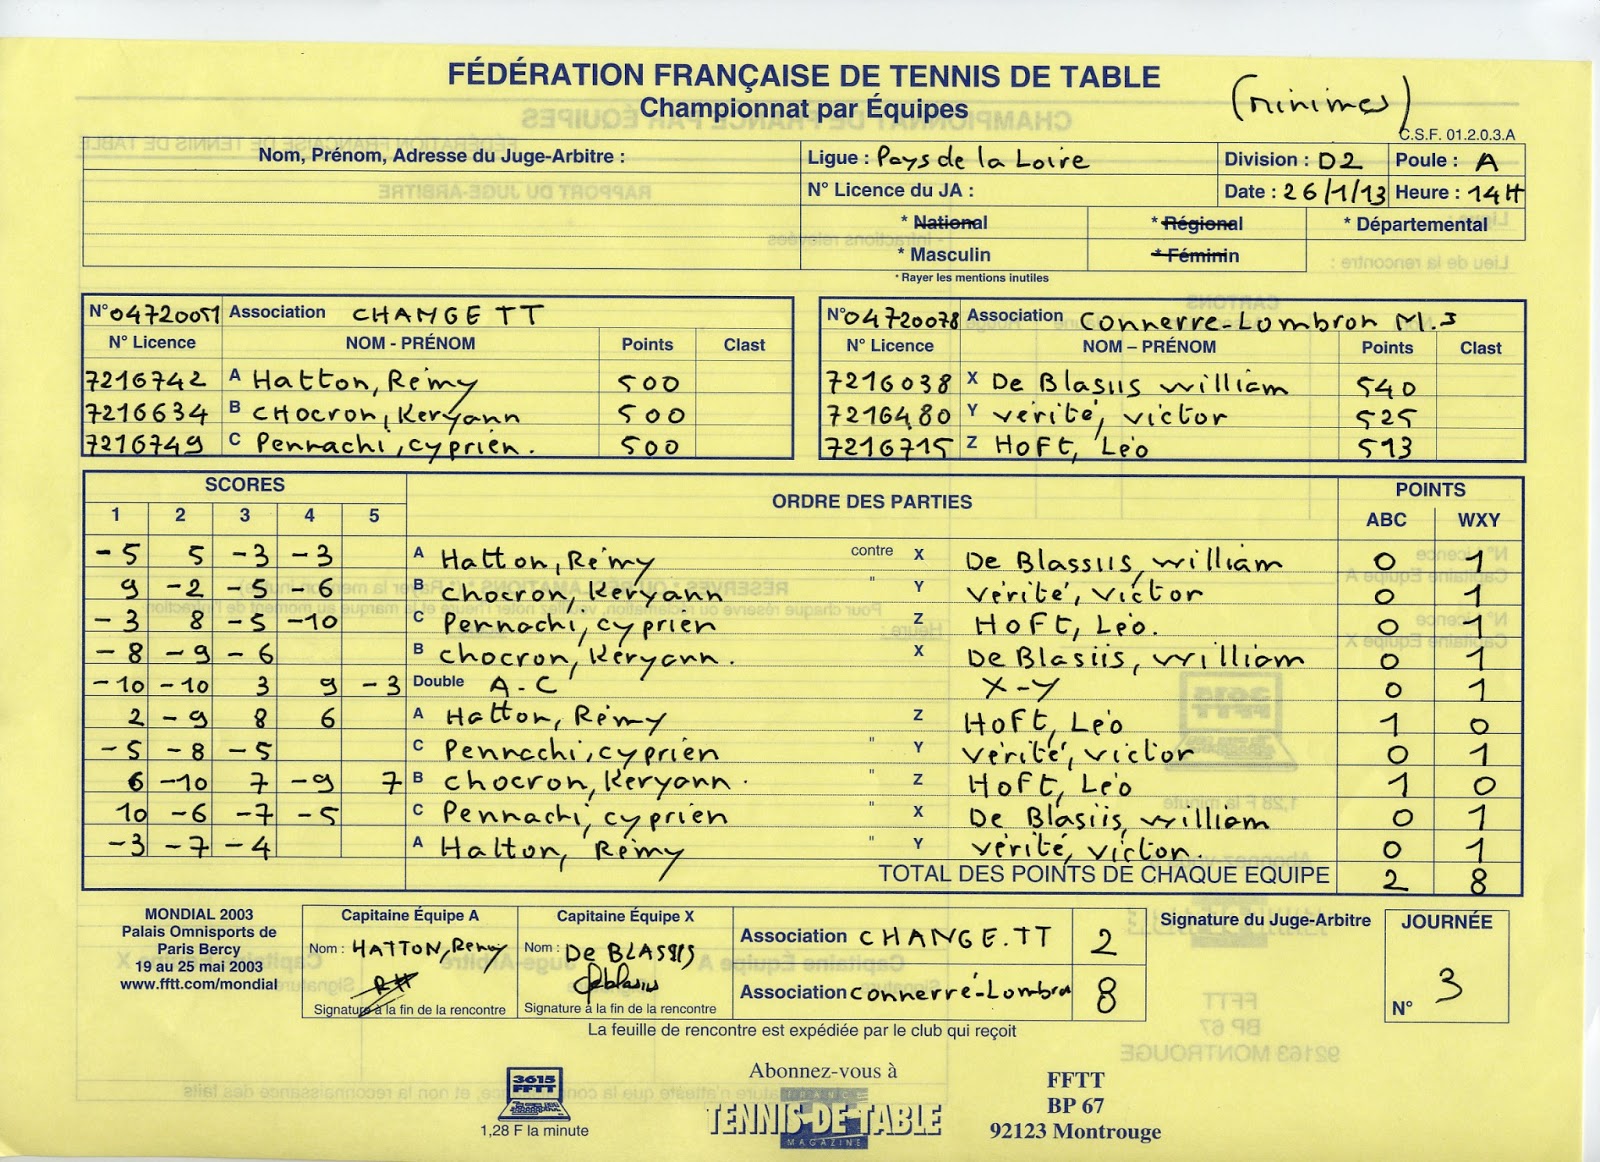 FÉDÉRATION FRANÇAISE DE TENNIS DE TABLE
Championnat par Équipes
(minimes)
C.S.F. 01.2.0.3.A
Nom, Prénom, Adresse du Juge-Arbitre :
Ligue : Pays de la Loire Division : D2 Poule : A
N° Licence du JA : Date : 26/1/13 Heure : 14H
* National * Régional * Départemental
* Masculin * Féminin
* Rayer les mentions inutiles
N° 04720051 Association CHANGE TT
N° Licence NOM - PRÉNOM Points Clast
7216742 A Hatton, Rémy 500
7216634 B CHocron, Keryann 500
7216749 C Pennachi, cyprien. 500
N° 04720078 Association Connerré-Lombron M.3
N° Licence NOM – PRÉNOM Points Clast
7216038 X De Blasiis william 540
7216480 Y vérité, victor 525
7216715 Z HoFt, Léo 513
SCORES ORDRE DES PARTIES POINTS
1 2 3 4 5 ABC WXY
-5 5 -3 -3 A Hatton, Rémy contre X De Blassiis, william 0 1
9 -2 -5 -6 B Chocron, Keryann " Y Vérité, victor 0 1
-3 8 -5 -10 C Pennachi, cyprien Z HoFt, Léo. 0 1
-8 -9 -6 B Chocron, Keryann. X De Blasiis, william 0 1
-10 -10 3 9 -3 Double A-C X-Y 0 1
2 -9 8 6 A Hatton, Rémy Z HoFt, Léo 1 0
-5 -8 -5 C Pennachi, cyprien " Y Vérité, victor 0 1
6 -10 7 -9 7 B Chocron, Keryann. " Z HoFt, Léo 1 0
10 -6 -7 -5 C Pennachi, cyprien " X De Blasiis, william 0 1
-3 -7 -4 A Hatton, Rémy " Y vérité, victor. 0 1
TOTAL DES POINTS DE CHAQUE EQUIPE 2 8
MONDIAL 2003
Palais Omnisports de
Paris Bercy
19 au 25 mai 2003
www.fftt.com/mondial
Capitaine Équipe A
Nom : HATTON, Remy
RH
Signature à la fin de la rencontre
Capitaine Équipe X
Nom : De BLASIIS
Signature à la fin de la rencontre
Association CHANGE.TT 2
Association Connerré-Lombron 8
Signature du Juge-Arbitre
JOURNÉE
N° 3
La feuille de rencontre est expédiée par le club qui reçoit
3615
FFTT
1,28 F la minute
Abonnez-vous à
FRANCE
TENNIS-DE-TABLE
MAGAZINE
FFTT
BP 67
92123 Montrouge